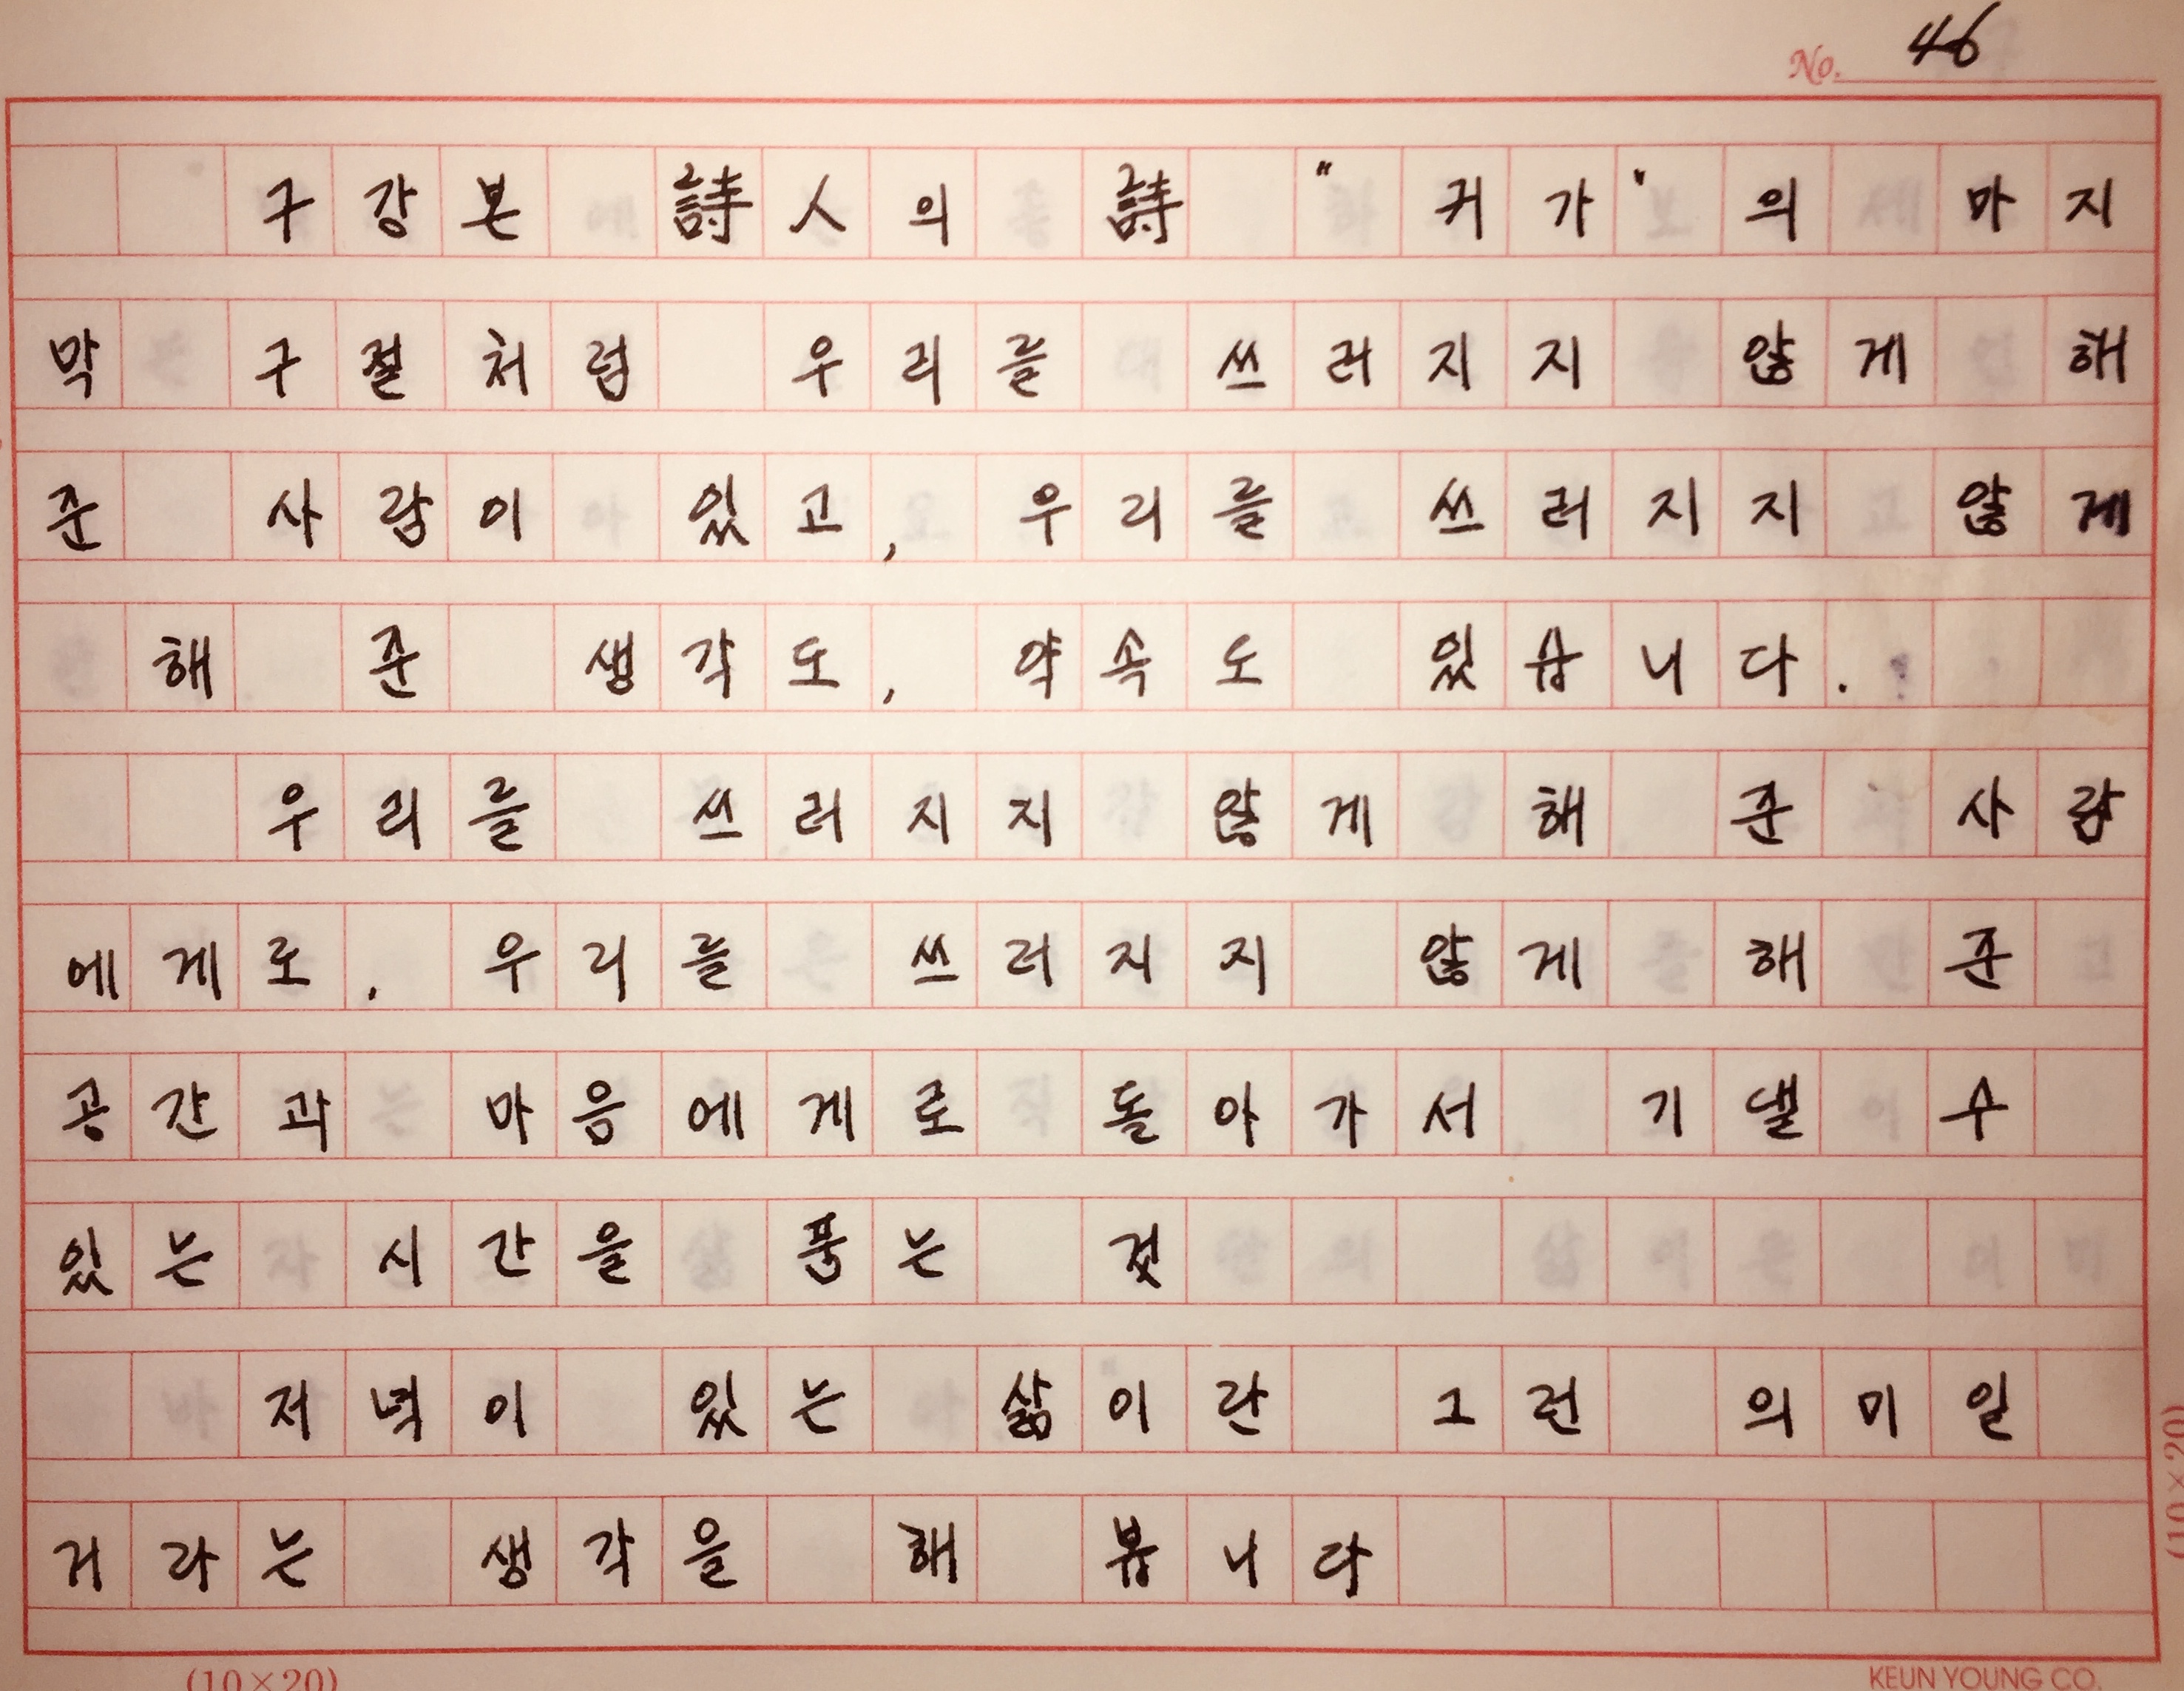 No. 46
구강본 詩人의 詩 "귀가"의 마지
막 구절처럼 우리를 쓰러지지 않게 해
준 사람이 있고, 우리를 쓰러지지 않게
해 준 생각도, 약속도 있습니다.
우리를 쓰러지지 않게 해 준 사람
에게로, 우리를 쓰러지지 않게 해 준
공간과 마음에게로 돌아가서 기댈 수
있는 시간을 품는 것
저녁이 있는 삶이란 그런 의미일
거라는 생각을 해 봅니다
(10×20)
(10×20)
KEUN YOUNG CO.